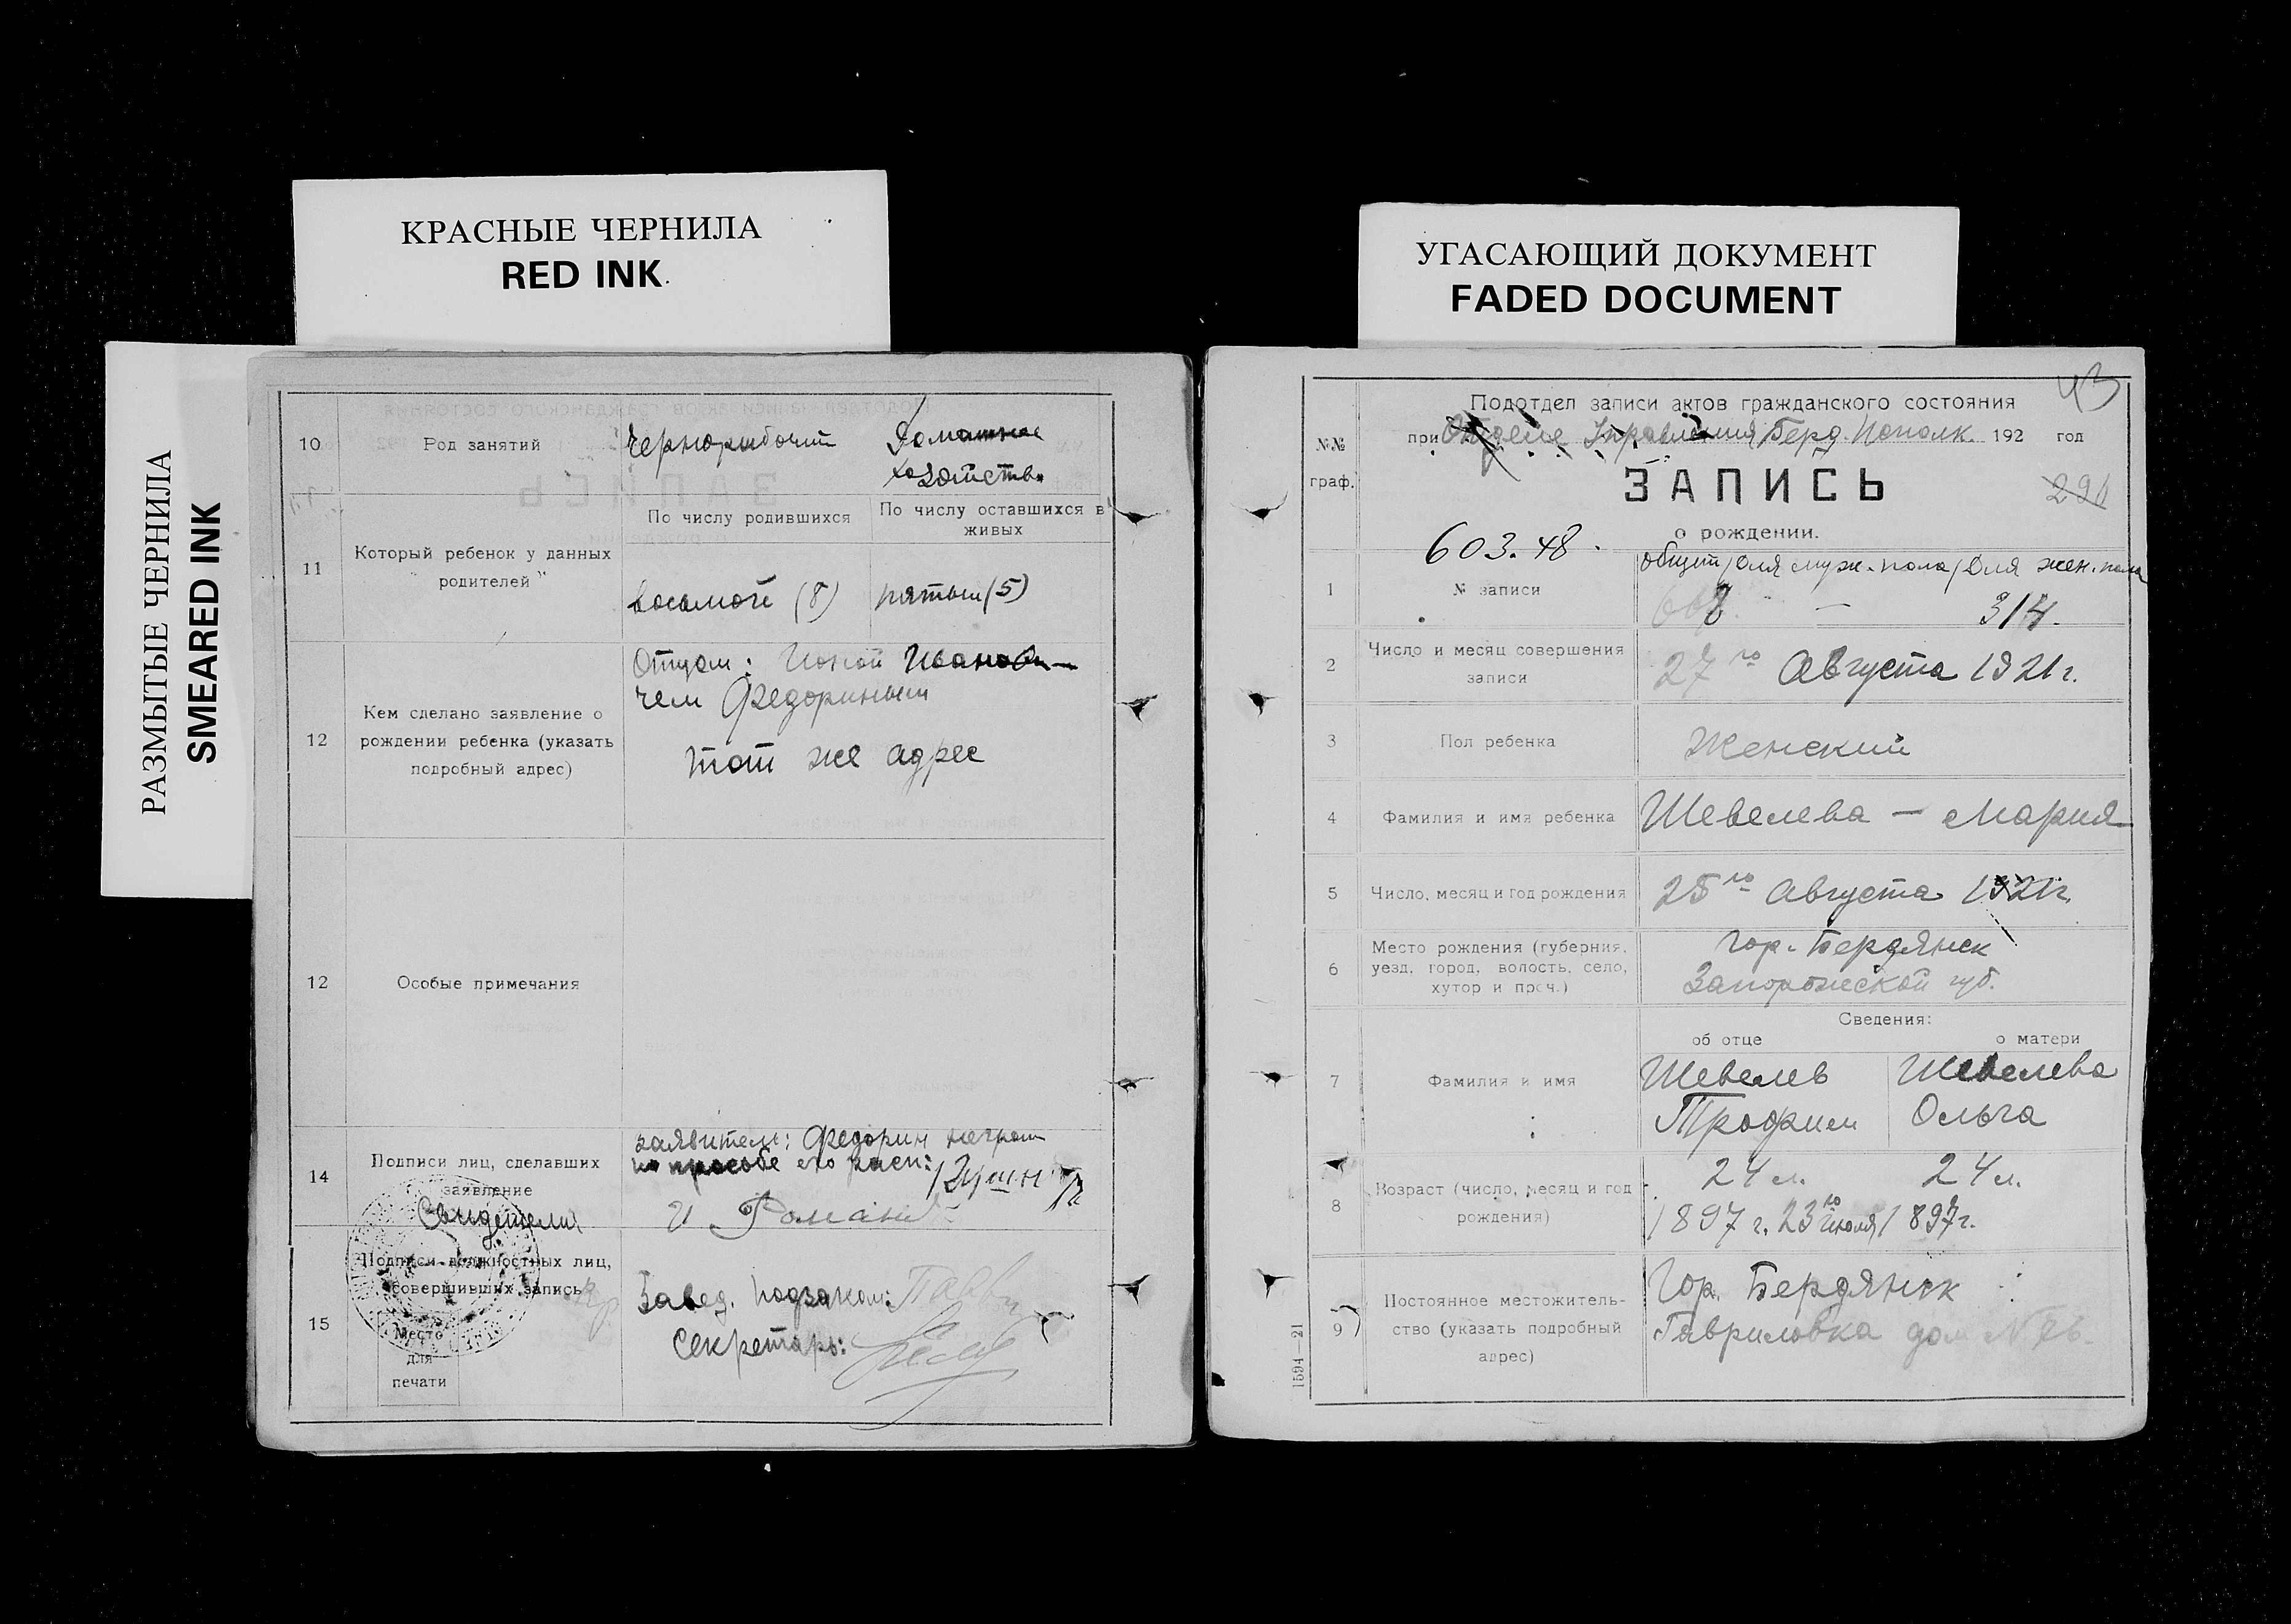 КРАСНЫЕ ЧЕРНИЛА
RED INK
РАЗМЫТЫЕ ЧЕРНИЛА
SMEARED INK
10 Род занятий Чернорабочий Домашнее
хозяйство
11 Который ребенок у данных
родителей
По числу родившихся По числу оставшихся в
живых
восьмой (8) пятый (5)
12 Кем сделано заявление о
рождении ребенка (указать
подробный адрес)
Отцом: Ионой Иванови-
чем Федориным
тот же адрес
12 Особые примечания
14 Подписи лиц, сделавших
заявление
Свидетели
заявитель: Федорин неграм
по просьбе его расп:
И. Роман
15 Подписи должностных лиц,
совершивших запись
Место
для
печати
Завед. подзаком:
Секретарь:
УГАСАЮЩИЙ ДОКУМЕНТ
FADED DOCUMENT
43
№№
граф.
Подотдел записи актов гражданского состояния
при Отделе Управления Берд. Исполк. 192 год
ЗАПИСЬ
о рождении.
603. 48.
общий/для муж. пола/для жен. пола
1 № записи — 314.
2 Число и месяц совершения
записи
27го Августа 1921 г.
3 Пол ребенка Женский
4 Фамилия и имя ребенка Шевелева — Мария
5 Число, месяц и год рождения 25го Августа 1921 г.
6 Место рождения (губерния,
уезд, город, волость, село,
хутор и проч.)
Гор. Бердянск
Запорожской губ.
Сведения:
об отце о матери
7 Фамилия и имя
Шевелев Шевелева
Трофим Ольга
8 Возраст (число, месяц и год
рождения)
24 л. 24 л.
1897 г. 23го июля 1897 г.
9 Постоянное местожитель-
ство (указать подробный
адрес)
Гор. Бердянск
Гавриловка дом №
1594—21